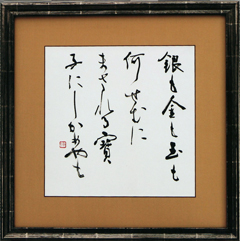 銀も金も玉も
何せむに
まされる寶
子にしかめやも